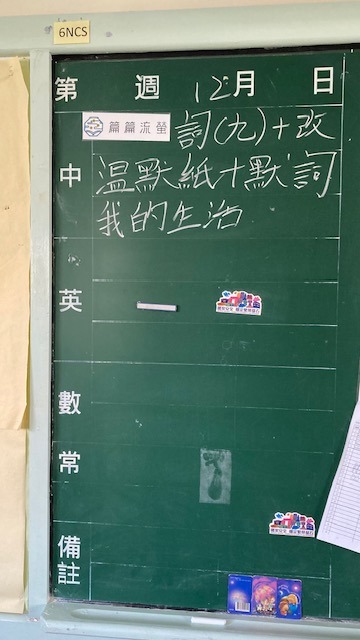 6NCS
第 週 12月 日
篇篇流螢 詞(九)+改
中 溫默紙+默詞
我的生活
英
數
常
備註